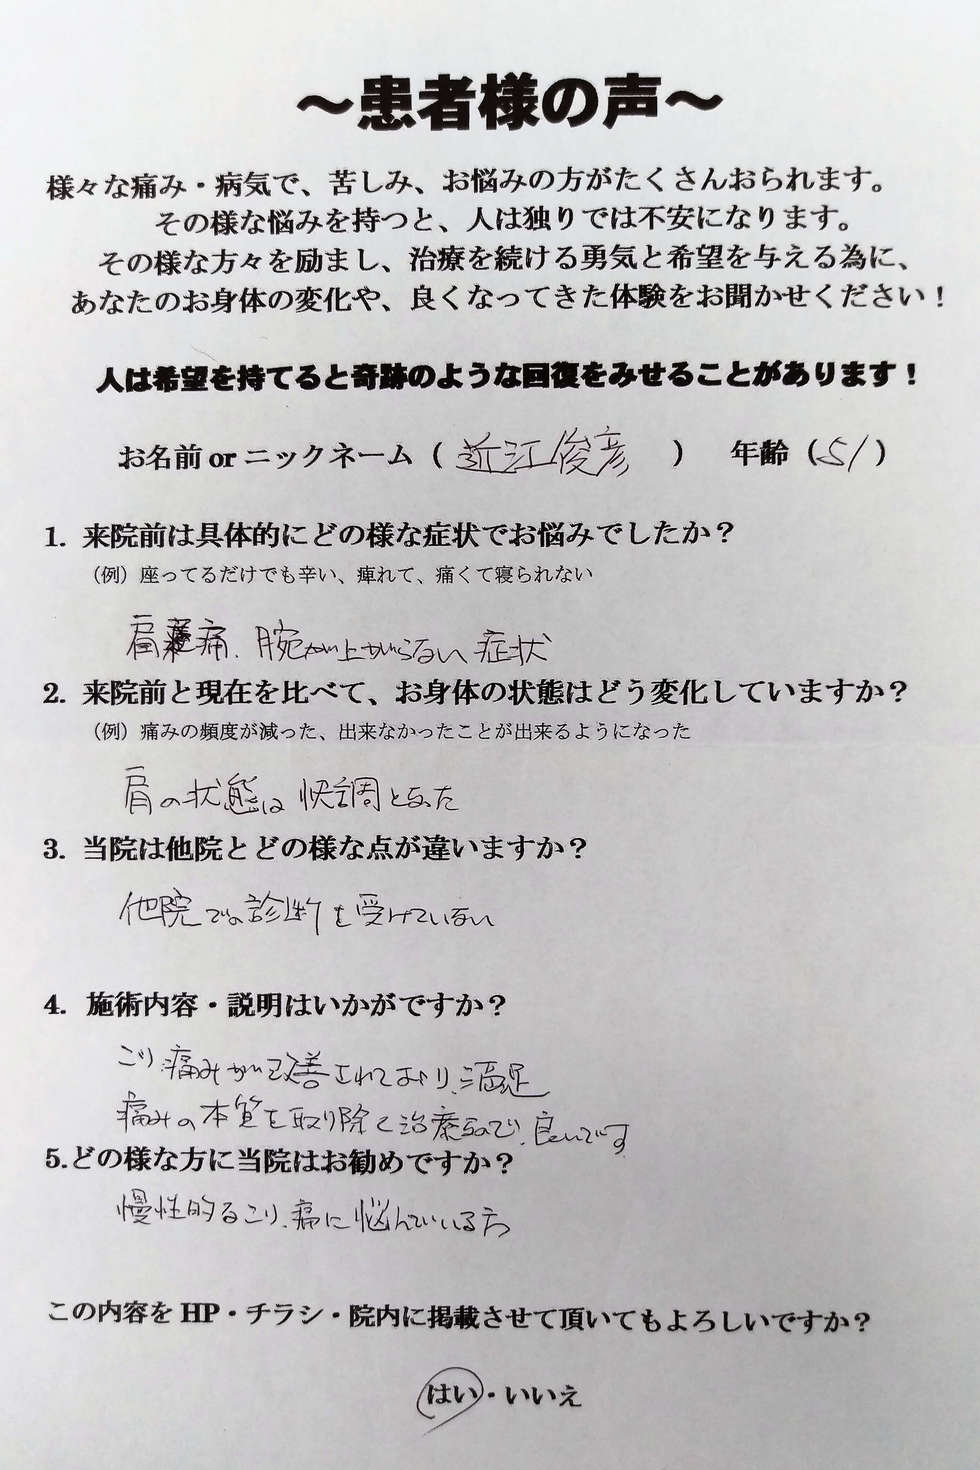 ～患者様の声～
様々な痛み・病気で、苦しみ、お悩みの方がたくさんおられます。
その様な悩みを持つと、人は独りでは不安になります。
その様な方々を励まし、治療を続ける勇気と希望を与える為に、
あなたのお身体の変化や、良くなってきた体験をお聞かせください！
人は希望を持てると奇跡のような回復をみせることがあります！
お名前 or ニックネーム（ 近江俊彦 ） 年齢（51）
1. 来院前は具体的にどの様な症状でお悩みでしたか？
（例）座ってるだけでも辛い、痺れて、痛くて寝られない
肩痛、腕が上がらない症状
2. 来院前と現在を比べて、お身体の状態はどう変化していますか？
（例）痛みの頻度が減った、出来なかったことが出来るようになった
肩の状態は快調となった
3. 当院は他院とどの様な点が違いますか？
他院での診断を受けていない
4. 施術内容・説明はいかがですか？
こり、痛みが改善されており、満足
痛みの本質を取り除く治療なので、良いです
5.どの様な方に当院はお勧めですか？
慢性的なこり、痛に悩んでいる方
この内容を HP・チラシ・院内に掲載させて頂いてもよろしいですか？
はい・いいえ